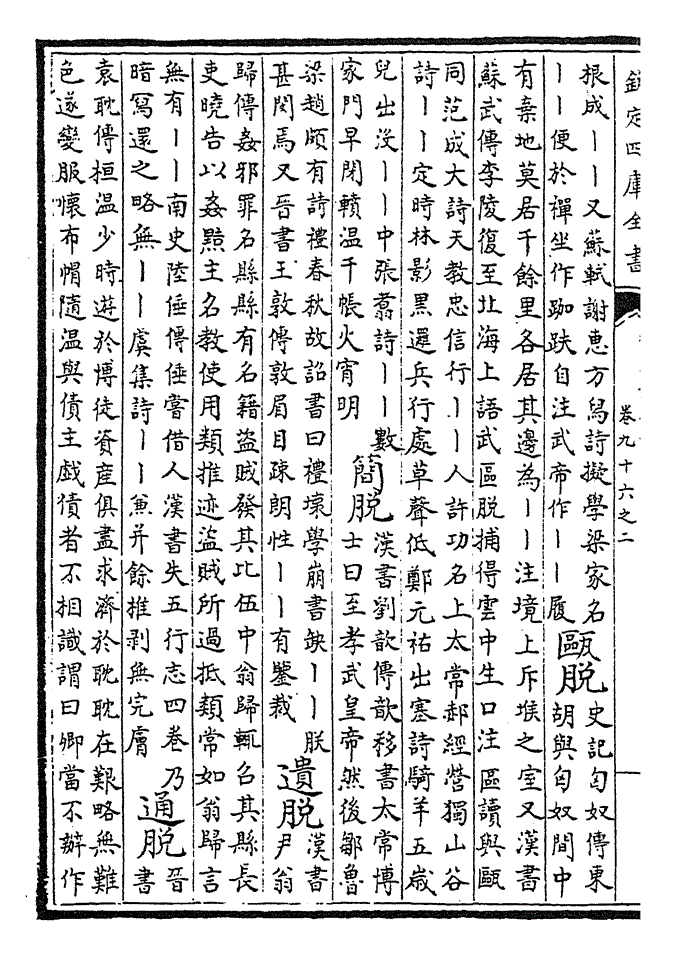 欽定四庫全書
卷九十六之二
根成丨丨又蘇軾謝惠方舄詩擬學梁家名
丨丨便於禪坐作跏趺自注武帝作丨丨履
甌脫
史記匈奴傳東
胡與匈奴間中
有棄地莫居千餘里各居其邊為丨丨注境上斥堠之室又漢書
蘇武傳李陵復至北海上語武區脫捕得雲中生口注區讀與甌
同范成大詩天教忠信行丨丨人許功名上太常郝經營獨山谷
詩丨丨定時林影黑邏兵行處草聲低鄭元祐出塞詩騎羊五歲
兒出沒丨丨中張翥詩丨丨數
家門早閉轒温千帳火宵明
簡脫
漢書劉歆傳歆移書太常博
士曰至孝武皇帝然後鄒魯
梁趙頗有詩禮春秋故詔書曰禮壞學崩書缺丨丨朕
甚閔焉又晉書王敦傳敦眉目疎朗性丨丨有鑒裁
遺脫
漢書
尹翁
歸傳姦邪罪名縣縣有名籍盜賊發其比伍中翁歸輒召其縣長
吏曉告以姦黠主名教使用類推迹盜賊所過抵類常如翁歸言
無有丨丨南史陸倕傳倕嘗借人漢書失五行志四卷乃
暗寫還之略無丨丨虞集詩丨丨兼并餘椎剥無完膚
通脫
晉
書
袁耽傳桓温少時遊於博徒資産俱盡求濟於耽耽在艱略無難
色遂變服懷布帽隨温與債主戲債者不相識謂曰卿當不辦作